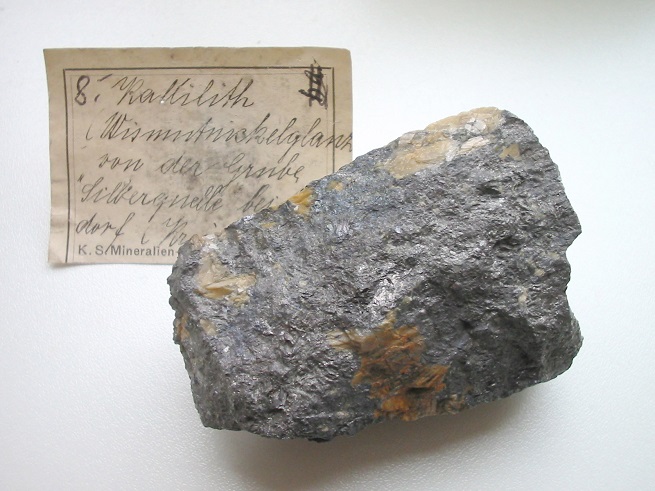 8. Kallilith
(Wismutnickelglanz
von der Grube
"Silberquelle bei
dorf (
K. S. Mineralien-